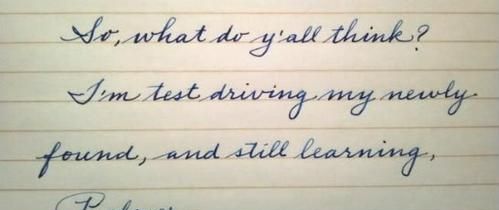 So, what do y'all think?
I'm test driving my newly-
found, and still learning,